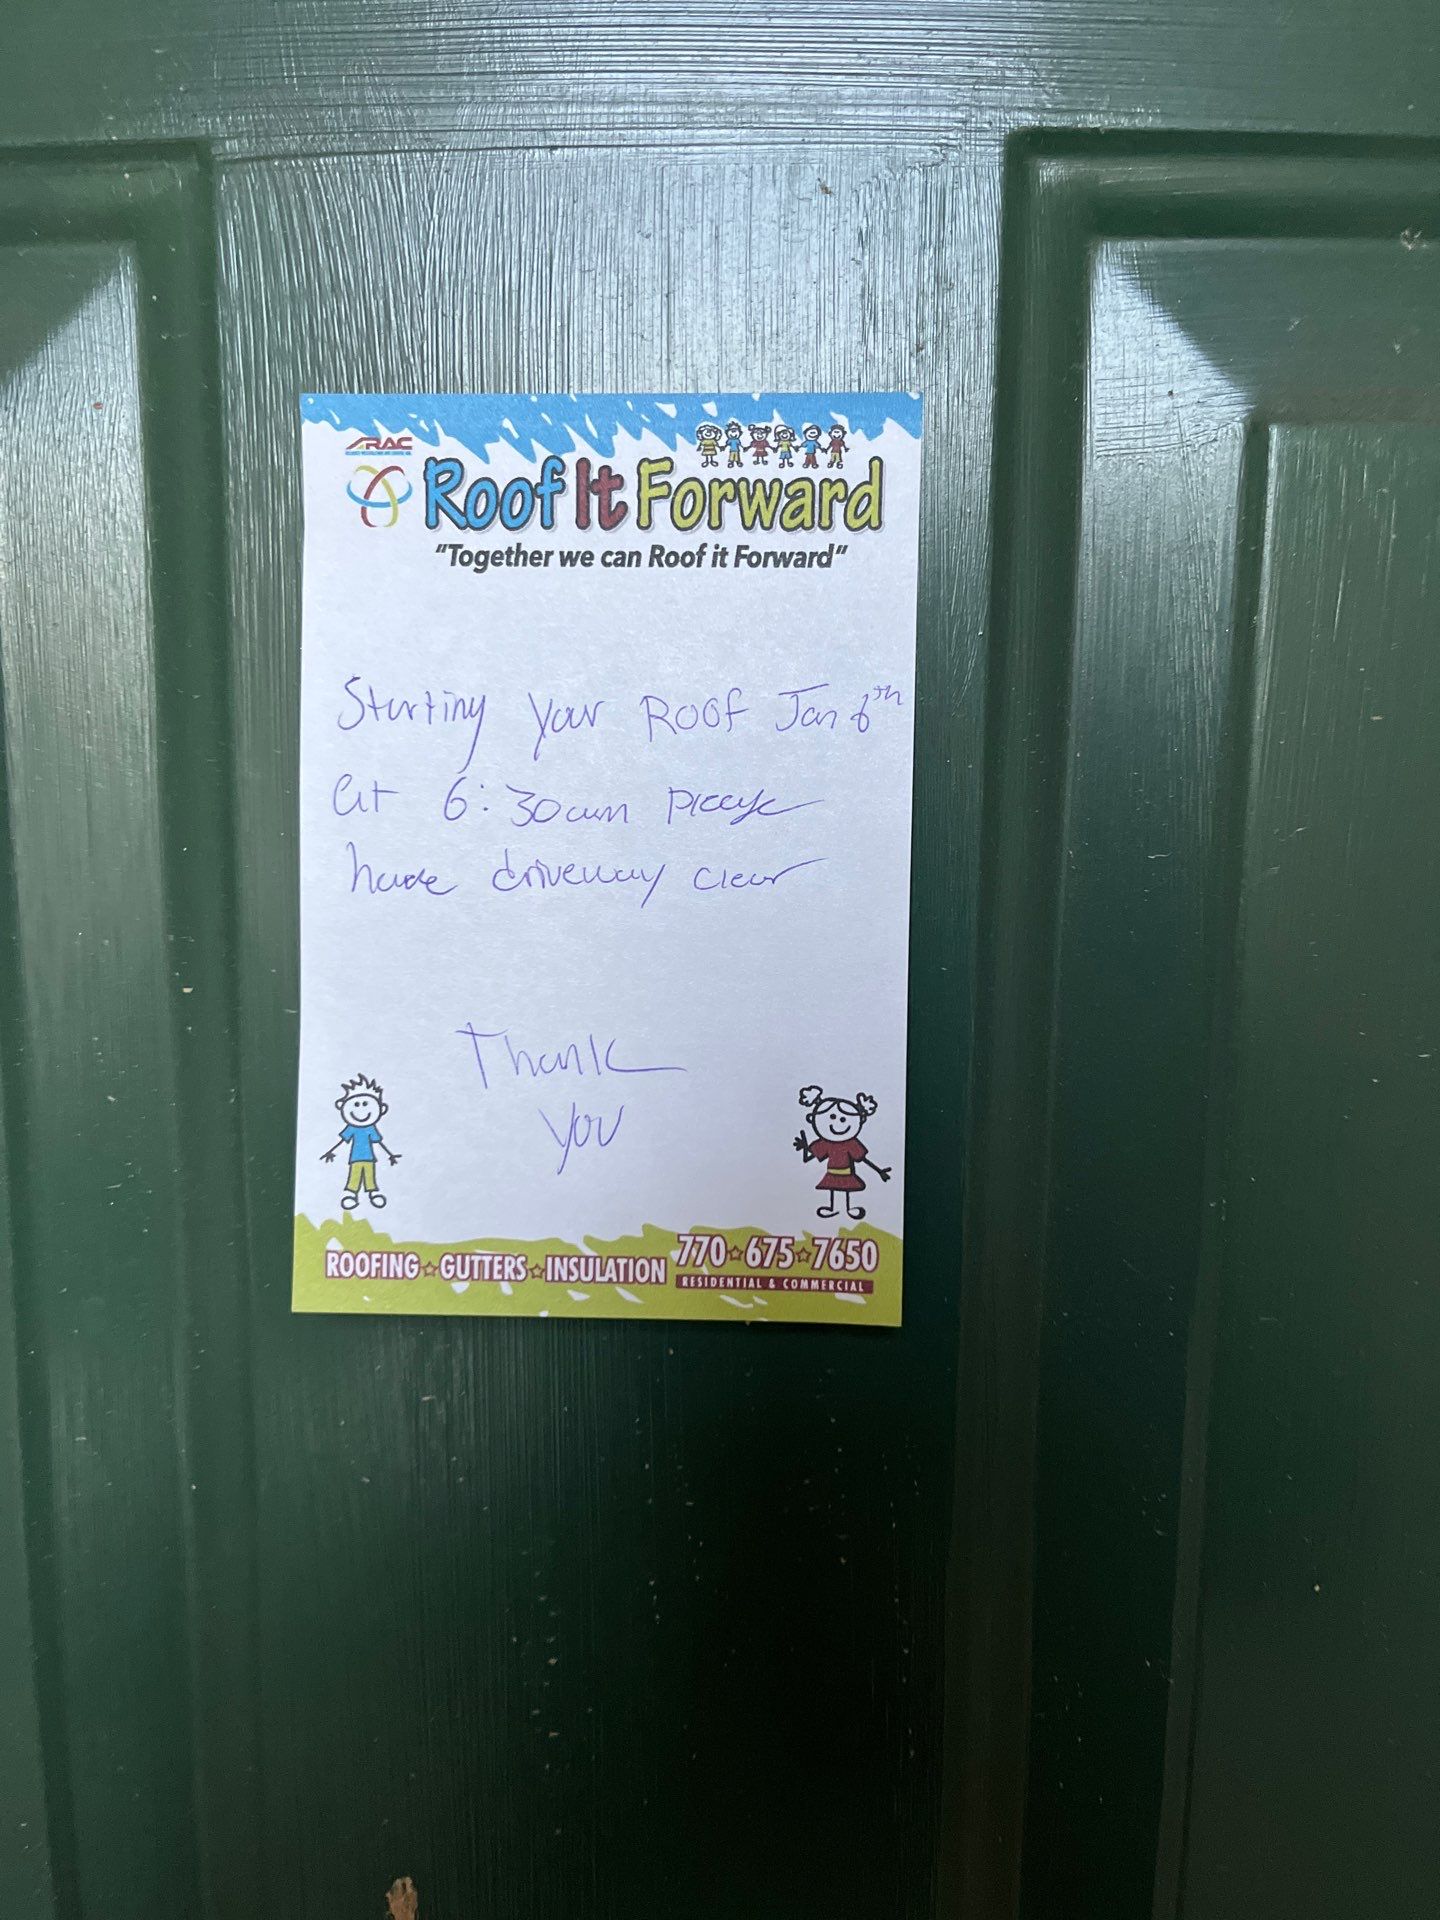 ARAC
Roof It Forward
"Together we can Roof it Forward"
Starting your Roof Jan 6th
at 6:30am please
have driveway clear
Thank
you
ROOFING☆GUTTERS☆INSULATION 770☆675☆7650
RESIDENTIAL & COMMERCIAL